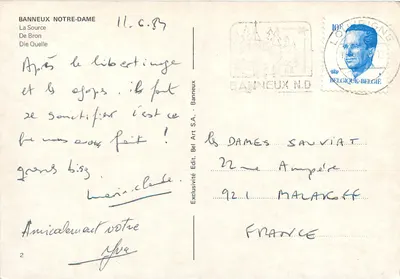 BANNEUX NOTRE-DAME
La Source
De Bron
Die Quelle
11.6.84
Après le libertinage
et les agapes. il faut
se sanctifier c'est ce
que nous avons fait !
grosses bises
Marie-claude
Amicalement votre
Yves
2
Exclusivité Edit. Bel Art S.A. - Banneux
BANNEUX N.D
LOUVEIGNE
10F
BELGIQUE-BELGIË
les DAMES SAUVIAT
22 rue Ampère
921 MALAKOFF
FRANCE